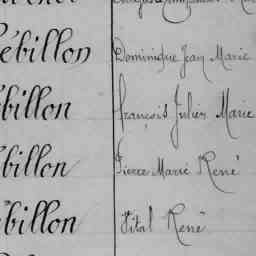 ébillon Dominique Jean Marie
billon François Julien Marie
billon Pierre Marie René
ébillon Vital René